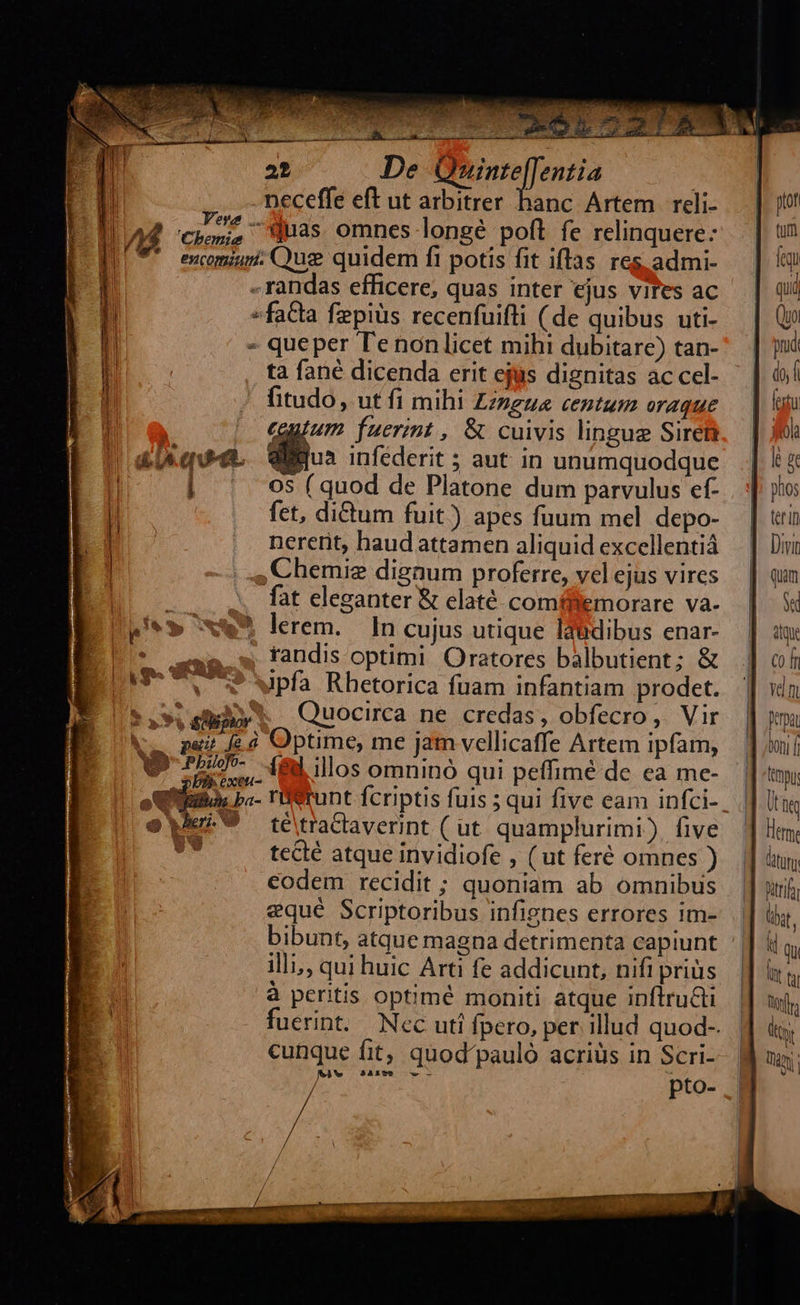 22 De Quinteſſentia
neceſſe eſt ut arbitrer hanc Artem reli-
Veræ Chemiæ encomium.
quas omnes longè poſt ſe relinquere:
Quæ quidem ſi potis ſit iſtas res admi-
randas efficere, quas inter ejus vires ac
facta ſæpiùs recenſuiſti (de quibus uti-
que per Te non licet mihi dubitare) tan-
ta ſanè dicenda erit ejus dignitas ac cel-
ſitudo, ut ſi mihi Linguæ centum oraque
centum fuerint, & cuivis linguæ Siren
aliqua
aliqua inſederit; aut in unumquodque
os (quod de Platone dum parvulus eſ-
ſet, dictum fuit) apes ſuum mel depo-
nerent, haud attamen aliquid excellentiâ
Chemiæ dignum proferre, vel ejus vires
ſat eleganter & elatè commemorare va-
lerem. In cujus utique laudibus enar-
randis optimi Oratores balbutient; &
ipſa Rhetorica ſuam infantiam prodet.
Quocirca ne credas, obſecro, Vir
petit ſe à
Optime, me jam vellicaſſe Artem ipſam,
Philoſo-
ſed illos omninò qui peſſimè de ea me-
ruerunt ſcriptis ſuis; qui ſive eam inſci-
tè tractaverint (ut quamplurimi) ſive
tectè atque invidioſe, (ut ferè omnes)
eodem recidit; quoniam ab omnibus
æquè Scriptoribus inſignes errores im-
bibunt, atque magna detrimenta capiunt
illi, qui huic Arti ſe addicunt, niſi priùs
à peritis optimè moniti atque inſtructi
fuerint. Nec uti ſpero, per illud quod-
cunque ſit, quod paulò acriùs in Scri-
pto-